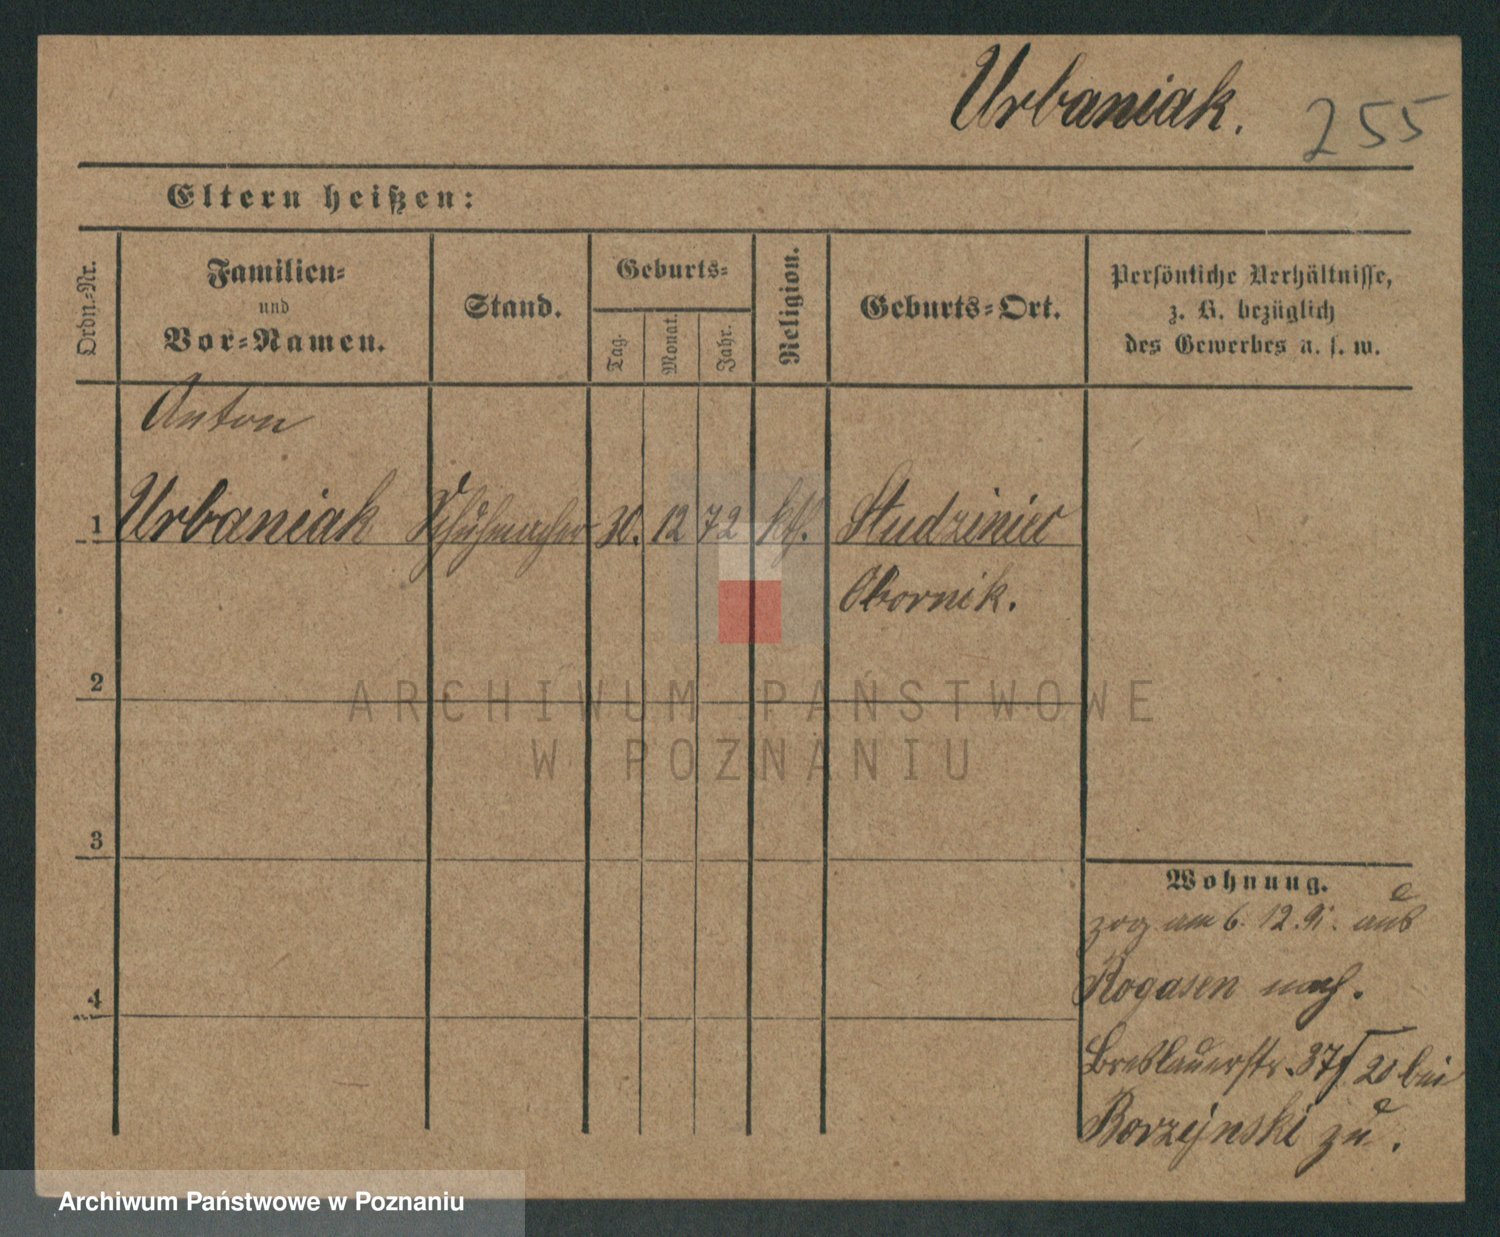 Urbaniak. 255
Eltern heißen:
Ordn.-Nr.
Familien-
und
Vor-Namen.
Stand.
Geburts-
Tag.
Monat.
Jahr.
Religion.
Geburts-Ort.
Persönliche Verhältnisse,
z. B. bezüglich
des Gewerbes u. s. w.
Anton
1 Urbaniak Schuhmacher 30. 12 72 kth. Studziniec
Obornik.
2
3
4
Wohnung.
zog am 6. 12. 91. aus
Rogasen nach.
Breslauerstr. 37/ 20 bei
Borzejnski zu.
ARCHIWUM PAŃSTWOWE
W POZNANIU
Archiwum Państwowe w Poznaniu